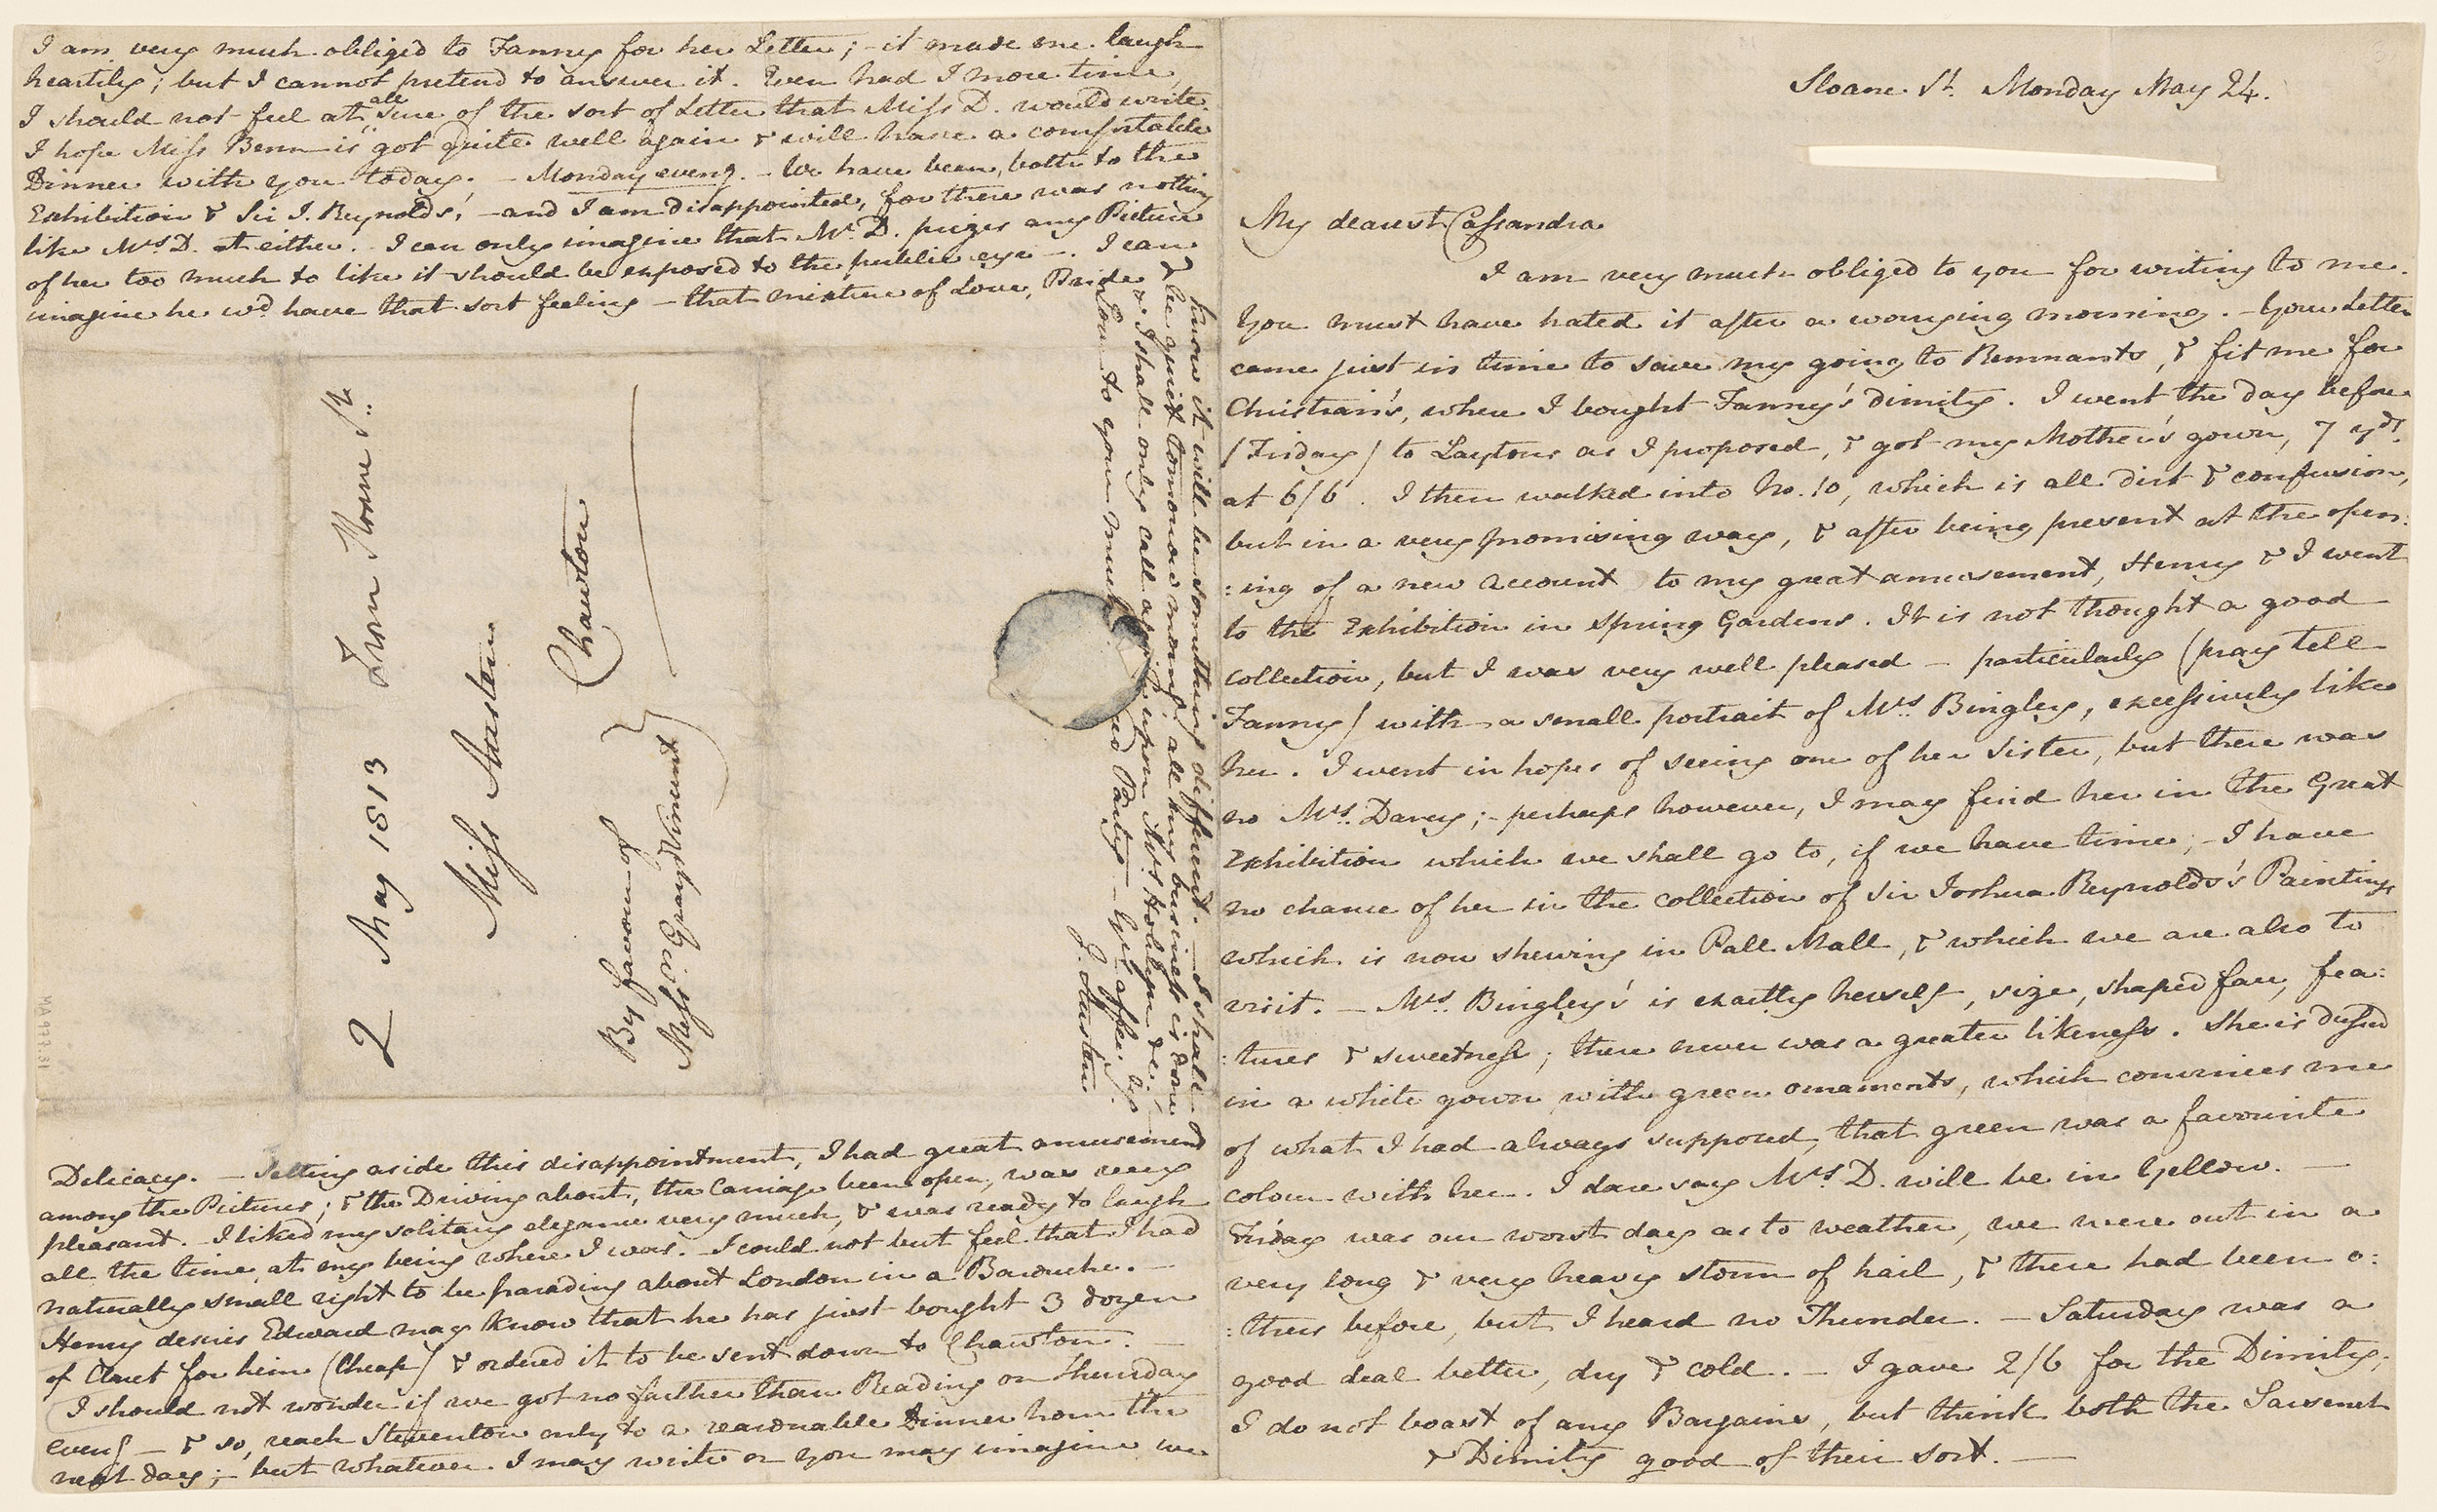 Sloane St. Monday May 24.
My dearest Cassandra
I am very much obliged to you for writing to me.
You must have hated it after a worrying morning. - Your Letter
came just in time to save my going to Remnants, & fit me for
Christian's, where I bought Fanny's dimity. I went the day before
(Friday) to Laytons as I proposed, & got my Mother's gown, 7 yds.
at 6/6. I then walked into No. 10, which is all dirt & confusion,
but in a very promising way, & after being present at the open:
:ing of a new account to my great amusement, Henry & I went
to the Exhibition in Spring Gardens. It is not thought a good
collection, but I was very well pleased - particularly (pray tell
Fanny) with a small portrait of Mrs. Bingley, excessively like
her. I went in hopes of seeing one of her Sister, but there was
no Mrs. Darcy; - perhaps however, I may find her in the Great
Exhibition which we shall go to, if we have time; - I have
no chance of her in the collection of Sir Joshua Reynolds's Paintings
which is now shewing in Pall Mall, & which we are also to
visit. - Mrs. Bingley's is exactly herself, size, shaped face, fea:
:tures & sweetness; there never was a greater likeness. She is dressed
in a white gown, with green ornaments, which convinces me
of what I had always supposed, that green was a favourite
colour with her. I dare say Mrs. D. will be in Yellow. -
Friday was our worst day as to weather, we were out in a
very long & very heavy storm of hail, & there had been o:
:thers before, but I heard no Thunder. - Saturday was a
good deal better, dry & cold. - I gave 2/6 for the Dimity;
I do not boast of any Bargains, but think both the Sarsenet
& Dimity good of their sort. -
I am very much obliged to Fanny for her Letter; - it made me laugh
heartily; but I cannot pretend to answer it. Even had I more time,
I should not feel at all sure of the sort of Letter that Miss D. would write.
I hope Miss Benn is got quite well again & will have a comfortable
Dinner with you today. - Monday eveng. - We have been both to the
Exhibition & Sir J. Reynolds', - and I am disappointed, for there was nothing
like Mrs. D. at either. - I can only imagine that Mr. D. prizes any Picture
of her too much to like it should be exposed to the public eye. - I can
imagine he wd. have that sort feeling - that mixture of Love, Pride &
Delicacy. - Setting aside this disappointment, I had great amusement
among the Pictures; & the Driving about, the Carriage been open, was very
pleasant. - I liked my solitary elegance very much, & was ready to laugh
all the time, at my being where I was. - I could not but feel that I had
naturally small right to be parading about London in a Barouche. -
Henry desires Edward may know that he has just bought 3 dozen
of Claret for him (Cheap) & ordered it to be sent down to Chawton. -
I should not wonder if we got no farther than Reading on Thursday
eveng - & so, reach Steventon only to a reasonable Dinner hour the
next day; - but whatever I may write or you may imagine we
know it will be something different. - I shall
be quiet tomorrow morng; all my business is done,
& I shall only call again upon Mrs. Hoblyn &c. -
Love to your much Party - Yrs. affecly.
J. Austen
2 May 1813 From Sloane St.
Miss Austen
Chawton
By favour of
Messrs. Gray & Vincent
MA 977.31